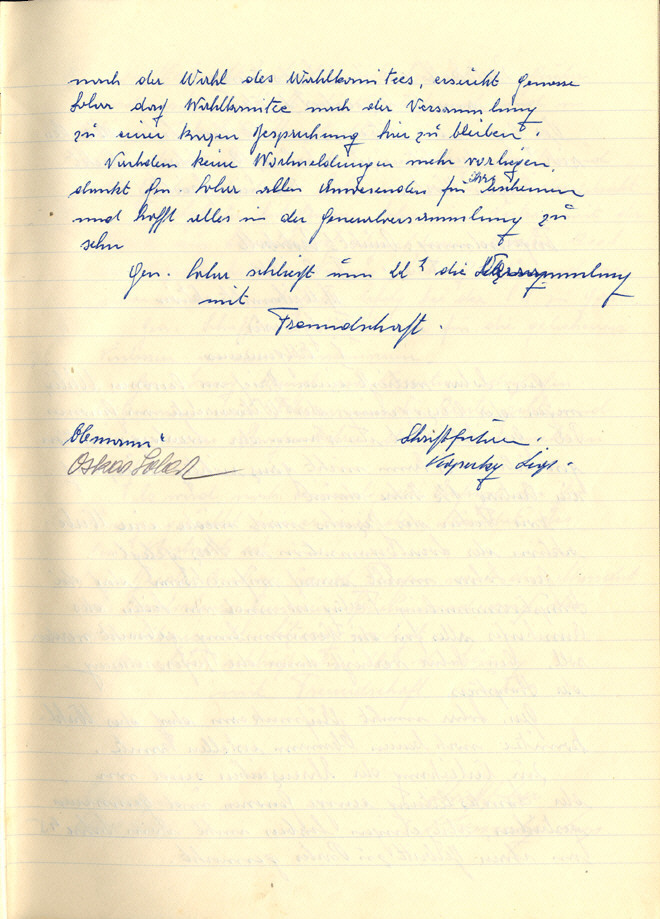 nach der Wahl des Wahlkomitees, ersucht Genosse
Lohar das Wahlkomitee nach der Versammlung
zu einer kurzen Besprechung hier zu bleiben.
Nachdem keine Wortmeldungen mehr vorliegen,
dankt Gen. Lohar allen Anwesenden für Ihr Erscheinen
und hofft alles in der Generalversammlung zu
sehn
Gen. Lohar schließt um 22 h die Versammlung
mit
Freundschaft.
Obmann: Schriftführer.
Oskar Ligi.